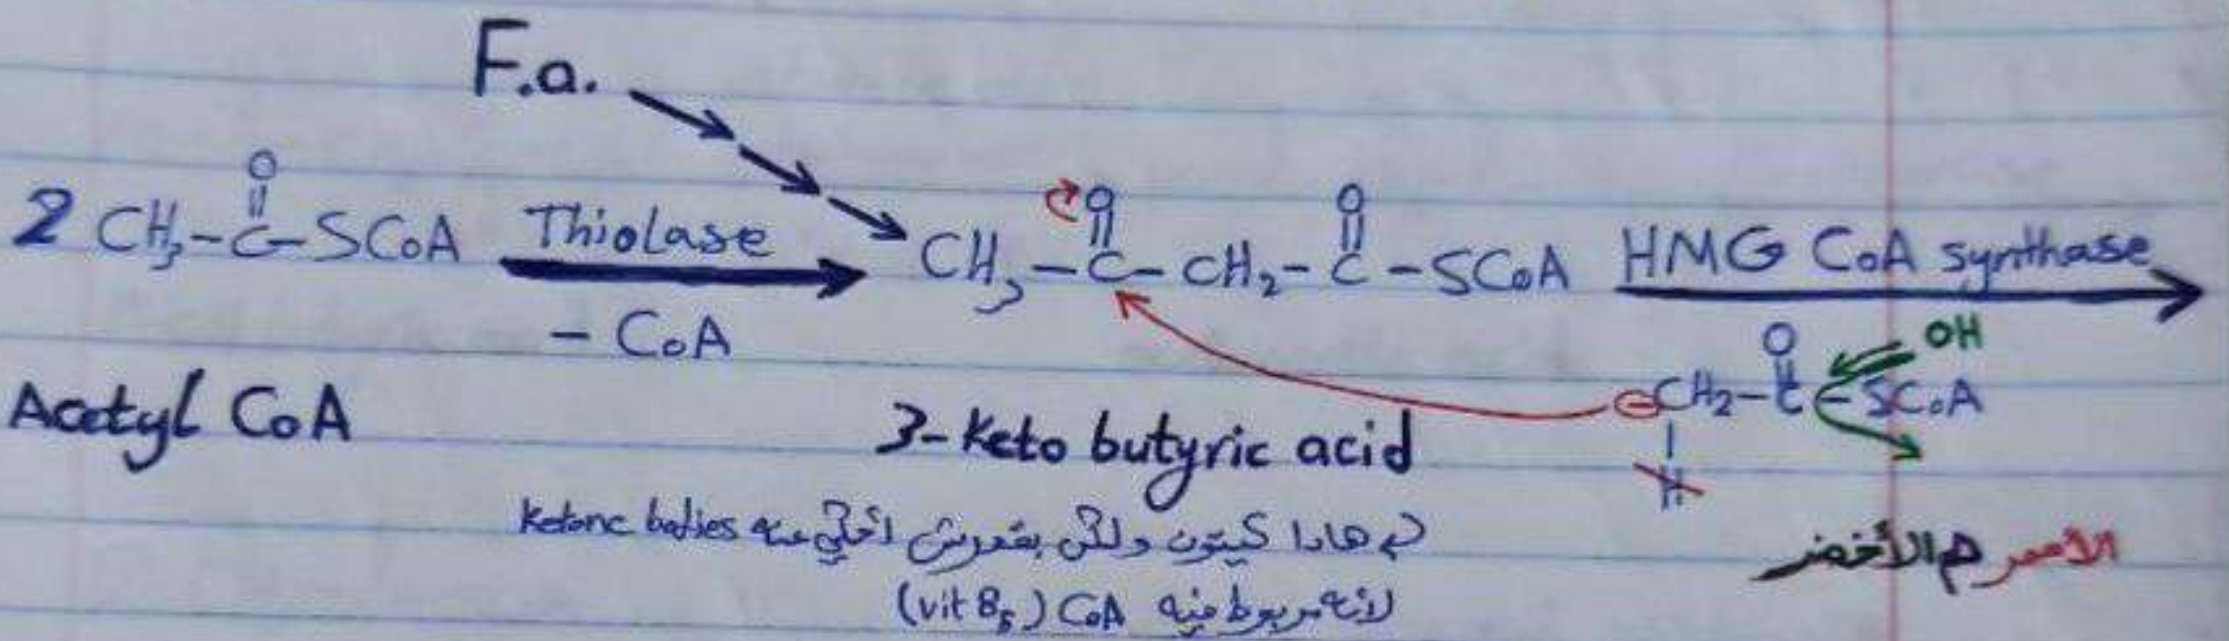 F.a.
2 CH3-C-SCoA Thiolase CH3-C-CH2-C-SCoA HMG CoA synthase
O
O
O
- CoA
O
OH
CH2-C-SCoA
H
Acetyl CoA
3-Keto butyric acid
هادا كيتون ولكن بقدرش أحكي عنه Ketone bodies
لأنه مربوط فيه CoA (vit B5)
الأحمر ثم الأخضر